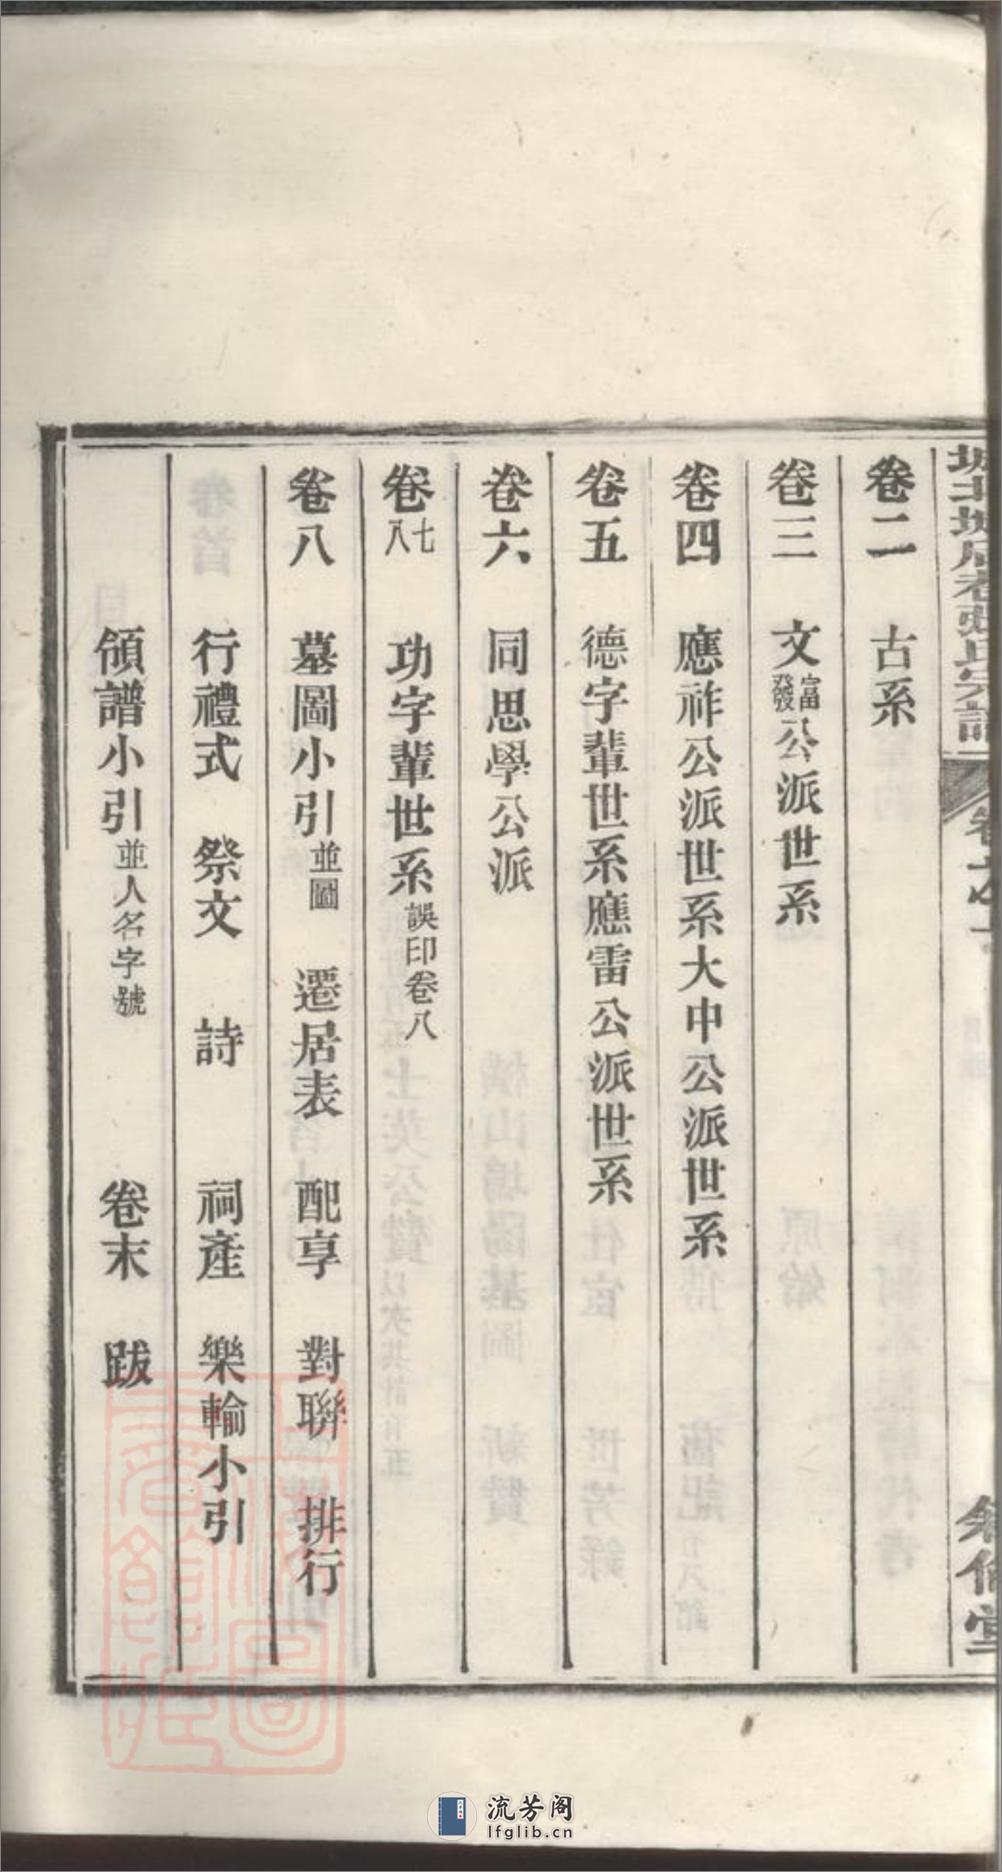 卷二　古系
卷三　文富發公派世系
卷四　應祚公派世系大中公派世系
卷五　德字輩世系應雷公派世系
卷六　同思學公派
卷七八　功字輩世系誤印卷八
卷八　墓圖小引並圖　遷居表　配享　對聯　排行
行禮式　祭文　詩　祠產　樂輸小引
領譜小引並人名字號　卷末　跋
流芳阁
lfglib.cn